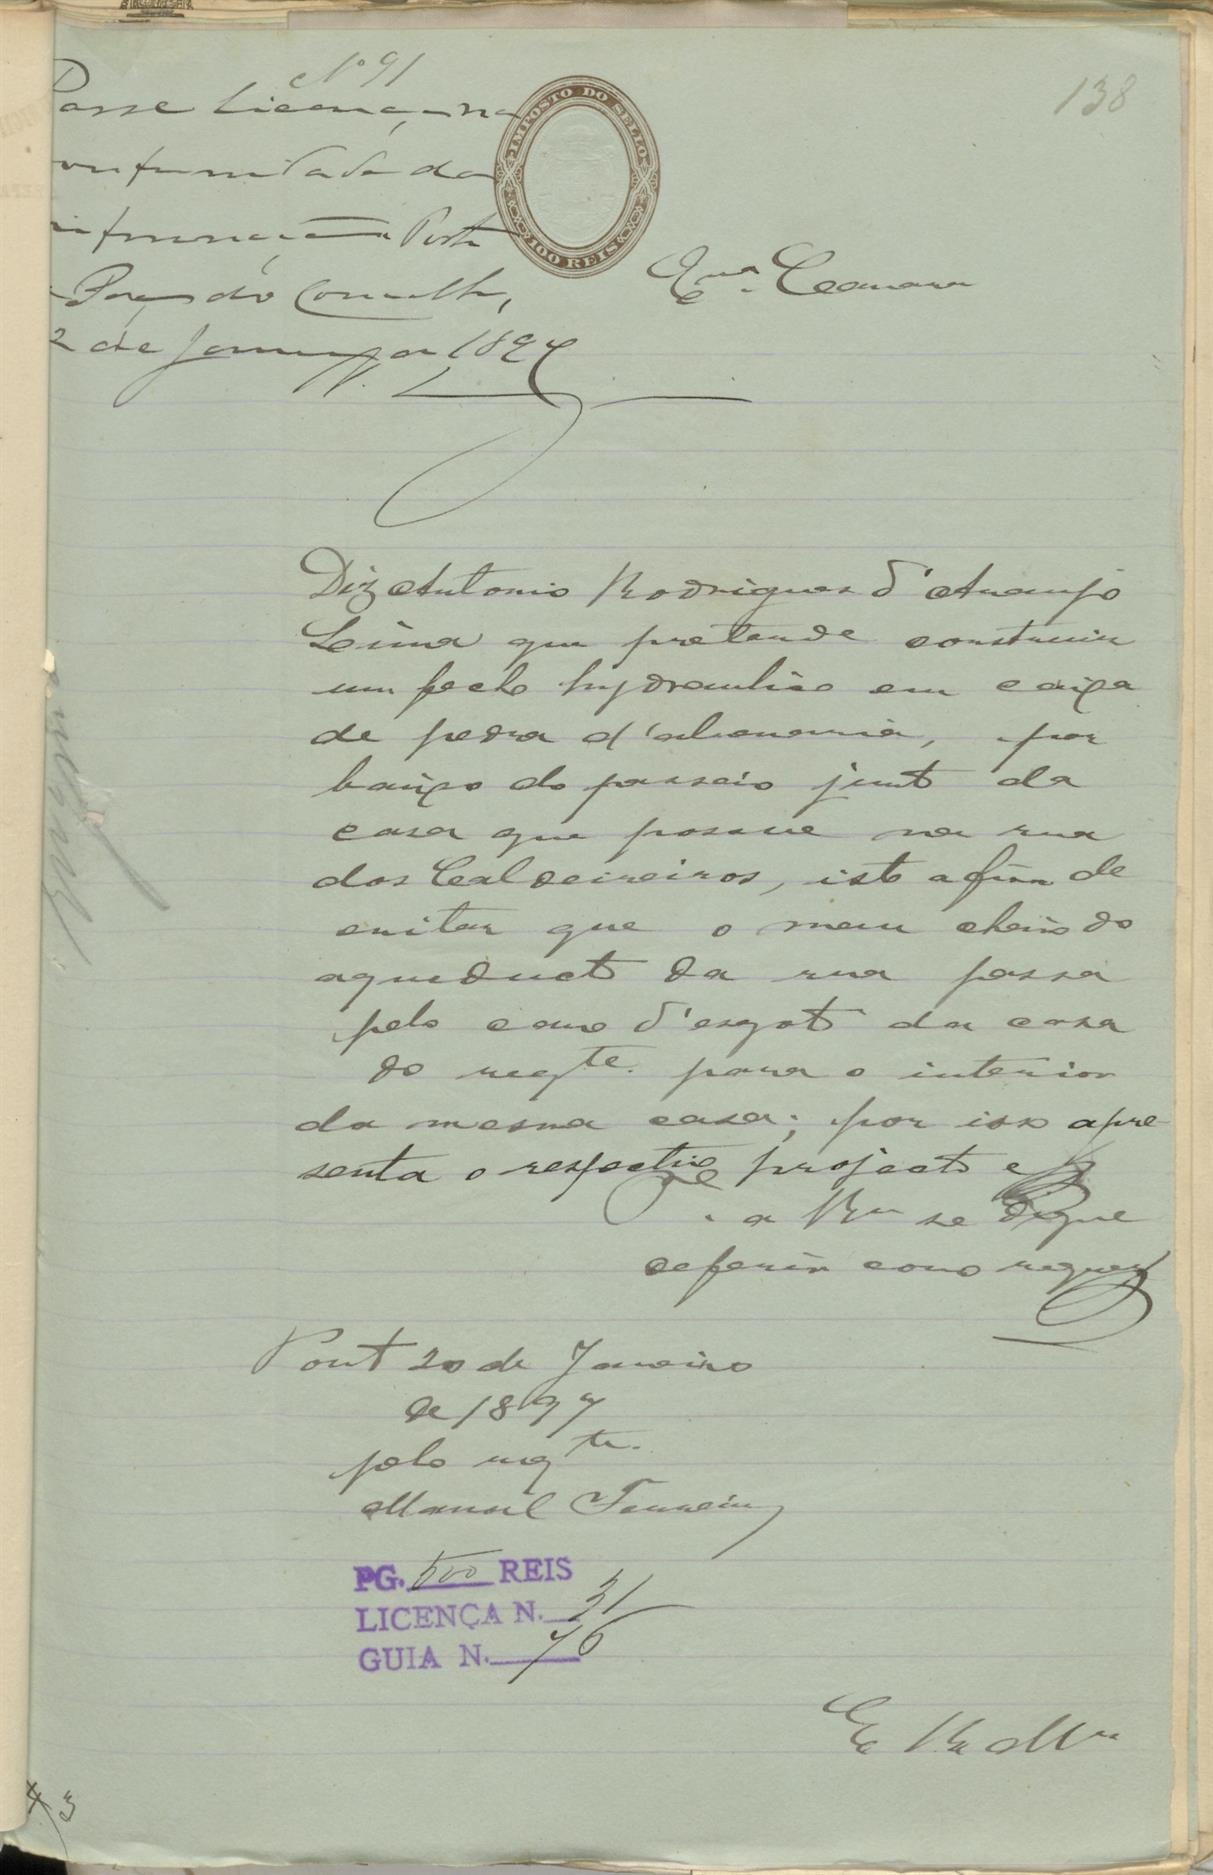 Nº 91
138
Passe licença na
conformidade da
informação Porto
Paços do Concelho,
2 de Janeiro de 1897
IMPOSTO DO SELLO
100 REIS
Exma. Camara
Diz Antonio Rodrigues d'Araujo
Lima que pretende construir
um fecho hydraulico em caixa
de pedra d'alvenaria, por
baixo do passeio junto da
casa que possue na rua
dos Caldeireiros, isto a fim de
evitar que o mau cheiro do
aqueducto da rua passa
pelo cano d'esgoto da casa
do reqte. para o interior
da mesma casa; por isso apre
senta o respectivo projecto e
P. a V. Exa se digne
deferir como requer
Porto 20 de Janeiro
de 1897
pelo reqte.
Manoel Ferreira
PG. 500 REIS
LICENÇA N. 31
GUIA N. 76
E. R. Mce